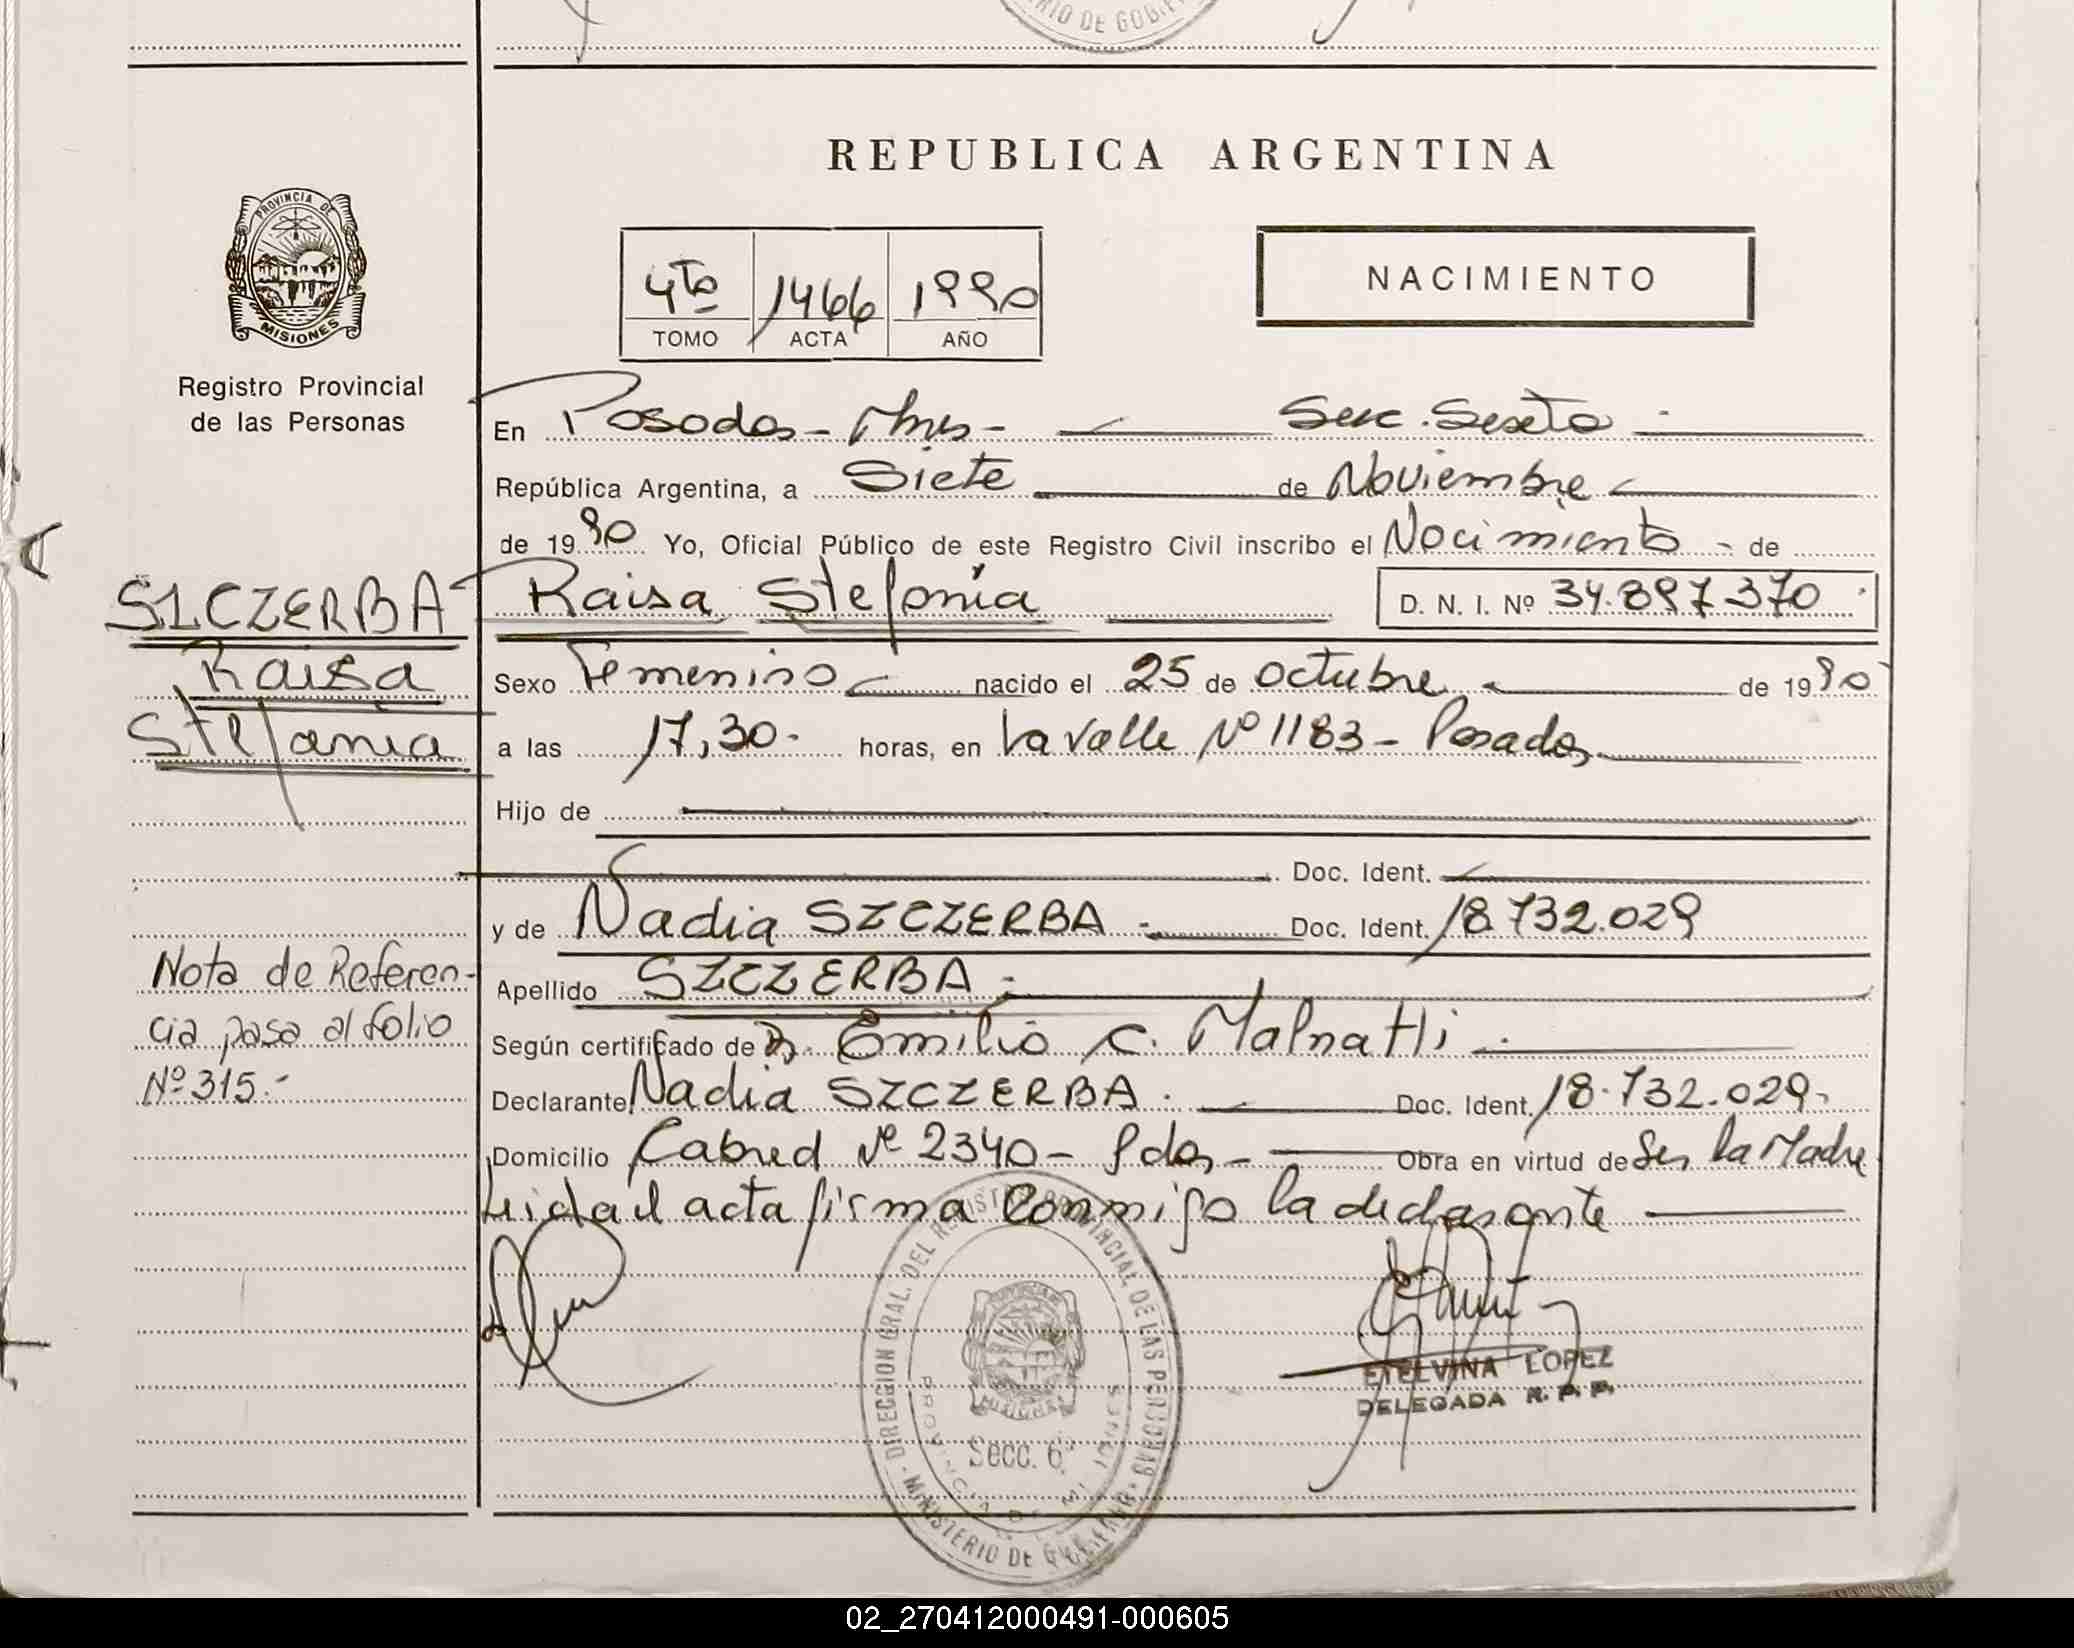 RIO DE GOBIE
REPUBLICA ARGENTINA
PROVINCIA DE
MISIONES
Registro Provincial
de las Personas
4to 1466 1990
TOMO ACTA AÑO
NACIMIENTO
En Posadas - Mnes - Secc. Sexta -
República Argentina, a Siete de Noviembre
de 1990 Yo, Oficial Público de este Registro Civil inscribo el Nacimiento - de
SZCZERBA Raisa Stefonía D. N. I. Nº 34.897370
Raisa
Stefania
Sexo Femenino nacido el 25 de Octubre de 1990
a las 17,30- horas, en Lavalle Nº 1183 - Posadas
Hijo de
Doc. Ident.
y de Nadia SZCZERBA - Doc. Ident. 18.732.029
Apellido SZCZERBA -
Según certificado de Dr. Emilio C. Malnatti -
Declarante Nadia SZCZERBA. Doc. Ident. 18.732.029-
Domicilio Cabred Nº 2340 - Pdas - Obra en virtud de Ser la Madre
Leida el acta firma conmigo la declarante
Nota de Referen-
cia pasa al folio
Nº 315.-
DIRECCION GRAL. DEL REGISTRO PROVINCIAL DE LAS PERSONAS
MINISTERIO DE GOBIERNO
PROVINCIA DE MISIONES
MISIONES
Secc. 6ª
ETELVINA LOPEZ
DELEGADA R. P. P.
02_270412000491-000605